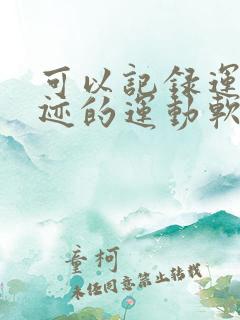 可以記録運
迹的運動軟
童柯
未经同意禁止转载